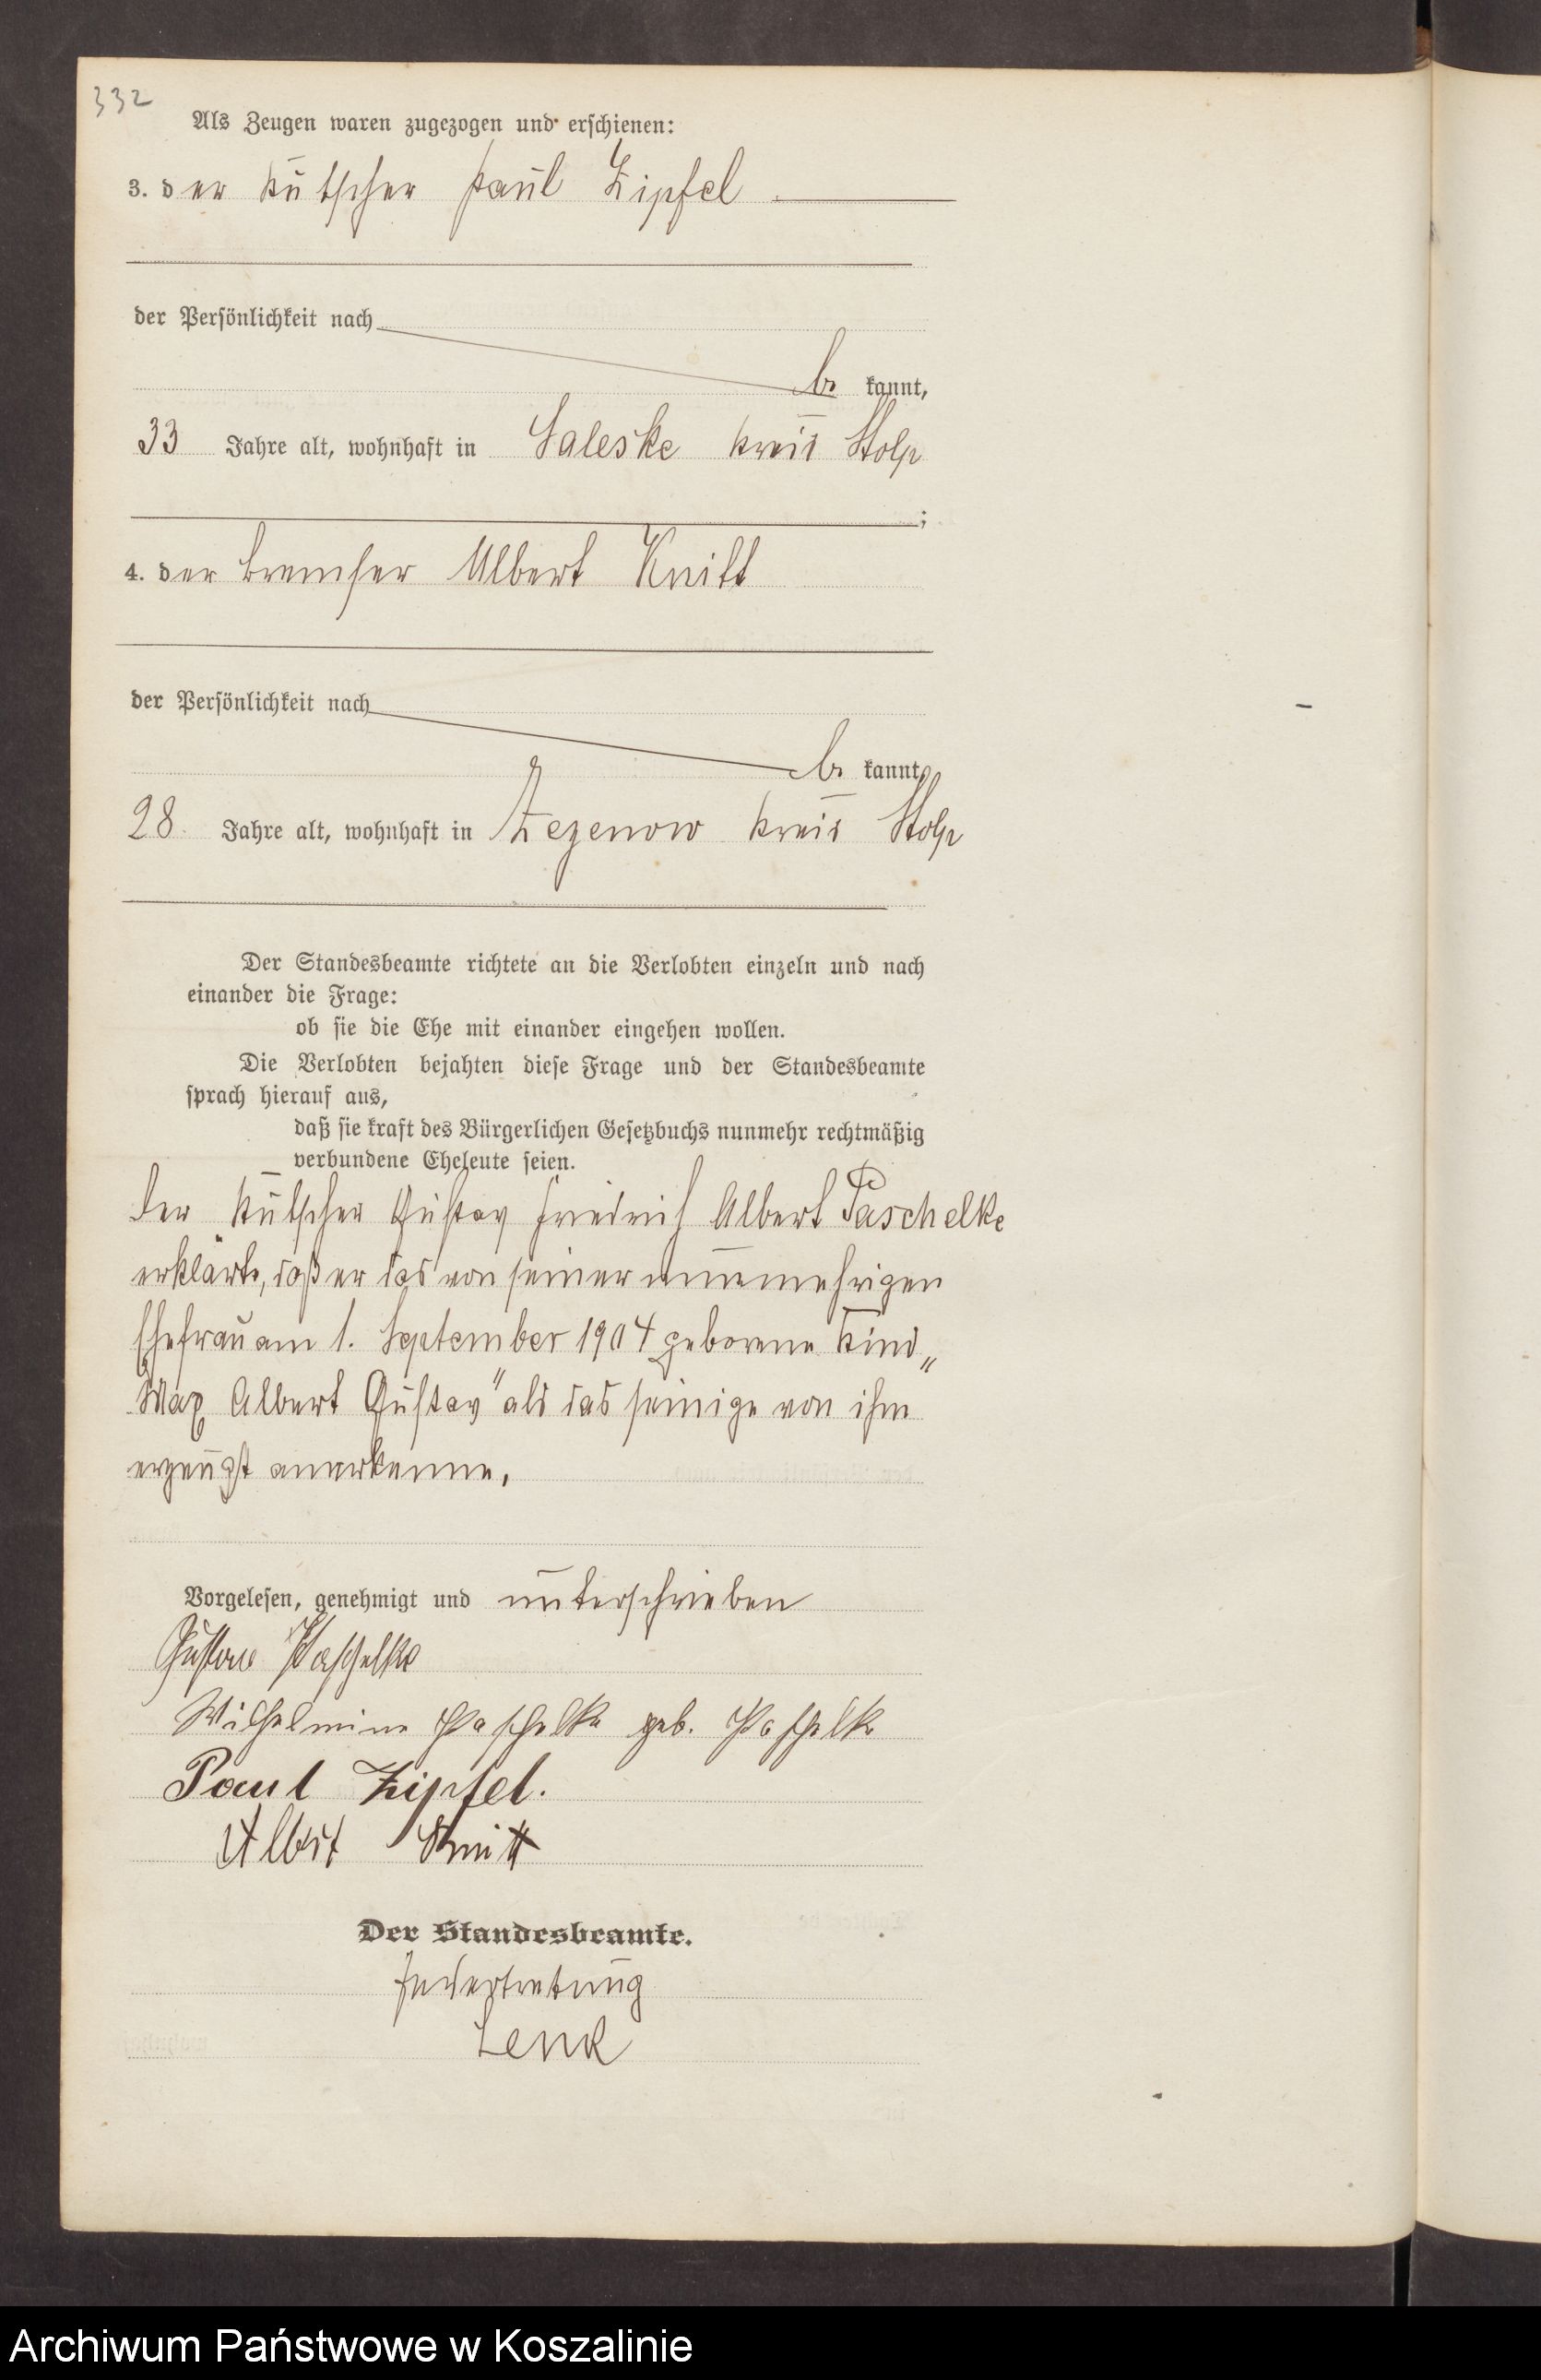 332
Als Zeugen waren zugezogen und erschienen:
3. der Kutscher Paul Zipfel
der Persönlichkeit nach
be kannt,
33 Jahre alt, wohnhaft in Saleske Kreis Stolp
;
4. der Bremser Albert Knitt
der Persönlichkeit nach
be kannt,
28 Jahre alt, wohnhaft in Zezenow Kreis Stolp
Der Standesbeamte richtete an die Verlobten einzeln und nach
einander die Frage:
ob sie die Ehe mit einander eingehen wollen.
Die Verlobten bejahten diese Frage und der Standesbeamte
sprach hierauf aus,
daß sie kraft des Bürgerlichen Gesetzbuchs nunmehr rechtmäßig
verbundene Eheleute seien.
Der Kutscher Gustav Friedrich Albert Paschelke
erklärte, daß er das von seiner nunmehrigen
Ehefrau am 1. September 1904 geborene Kind „
Max Albert Gustav" als das seinige von ihm
erzeugt anerkenne.
Vorgelesen, genehmigt und unterschrieben
Gustav Paschelke
Wilhelmine Paschelke geb. Paschelke
Paul Zipfel.
Albert Knitt
Der Standesbeamte.
In Vertretung
Lenk
Archiwum Państwowe w Koszalinie